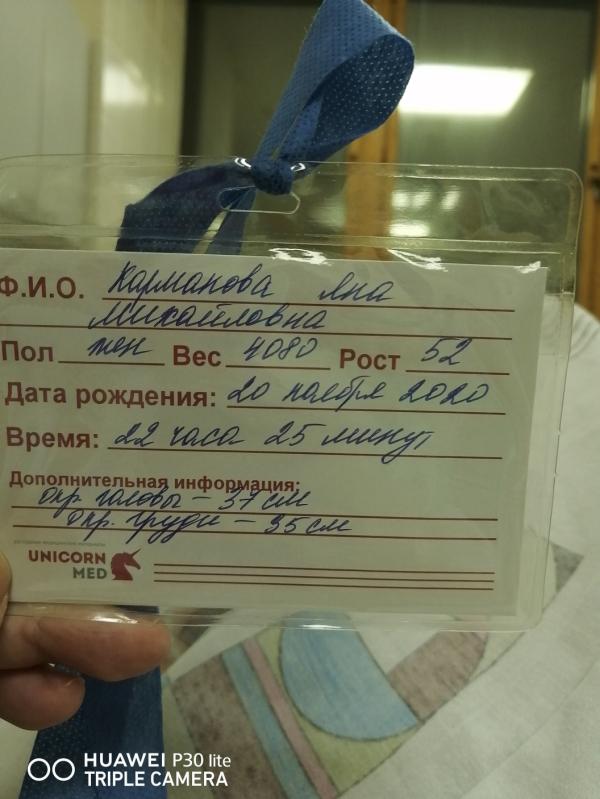 Ф.И.О. Карманова Яна
Михайловна
Пол жен Вес 4080 Рост 52
Дата рождения: 20 ноября 2020
Время: 22 часа 25 минут
Дополнительная информация:
окр. головы - 37 см
окр. груди - 35 см
UNICORN
MED
HUAWEI P30 lite
TRIPLE CAMERA